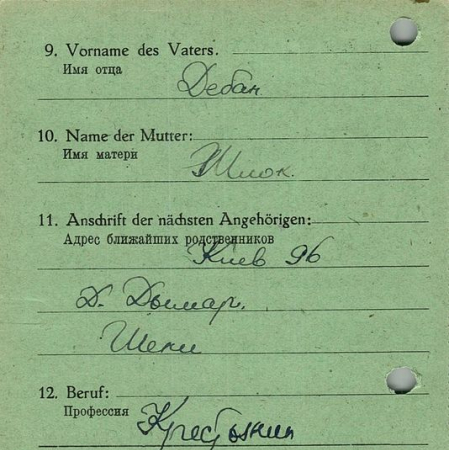 9. Vorname des Vaters.
Имя отца
Дебан
10. Name der Mutter:
Имя матери
Шлюк.
11. Anschrift der nächsten Angehörigen:
Адрес ближайших родственников
Киев 96
Д. Дымар.
Шеки
12. Beruf:
Профессия
Крестьянин